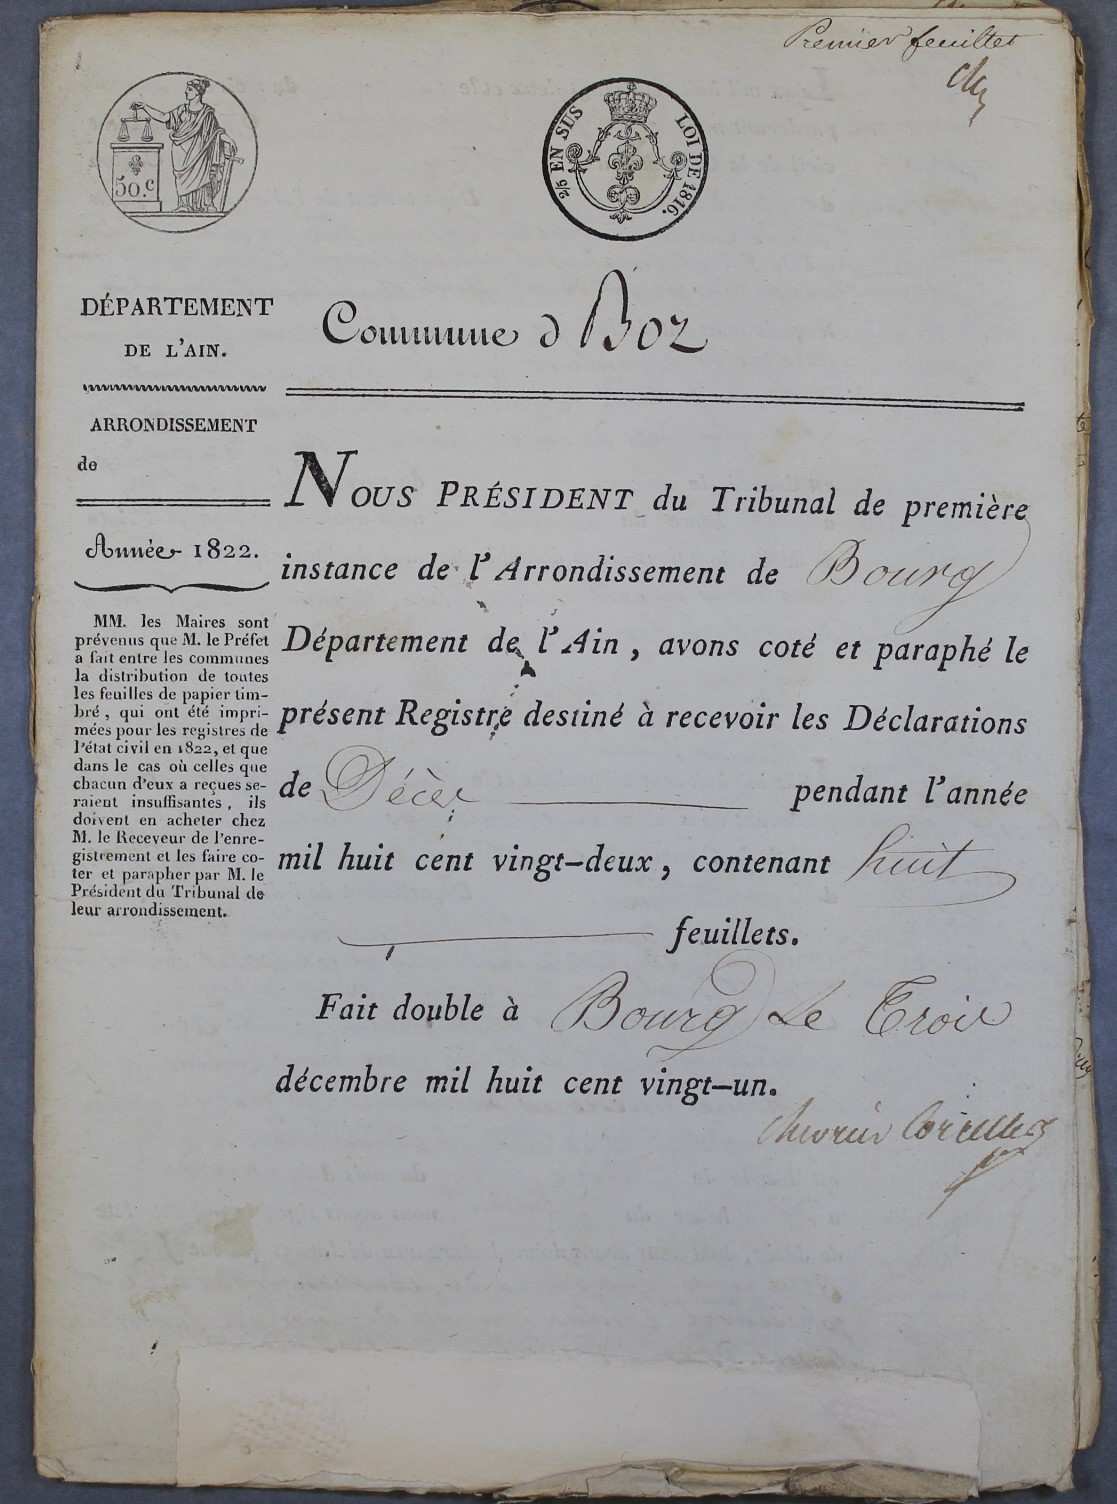 Premier feuillet
50.c
2/5 EN SUS
LOI DE 1816.
DÉPARTEMENT
DE L'AIN.
ARRONDISSEMENT
de
Année 1822.
MM. les Maires sont
prévenus que M. le Préfet
a fait entre les communes
la distribution de toutes
les feuilles de papier tim-
bré, qui ont été impri-
mées pour les registres de
l'état civil en 1822, et que
dans le cas où celles que
chacun d'eux a reçues se-
raient insuffisantes, ils
doivent en acheter chez
M. le Receveur de l'enre-
gistrement et les faire co-
ter et parapher par M. le
Président du Tribunal de
leur arrondissement.
Commune d Boz
NOUS PRÉSIDENT du Tribunal de première
instance de l'Arrondissement de Bourg
Département de l'Ain, avons coté et paraphé le
présent Registre destiné à recevoir les Déclarations
de Décès pendant l'année
mil huit cent vingt-deux, contenant huit
feuillets.
Fait double à Bourg Le Trois
décembre mil huit cent vingt-un.